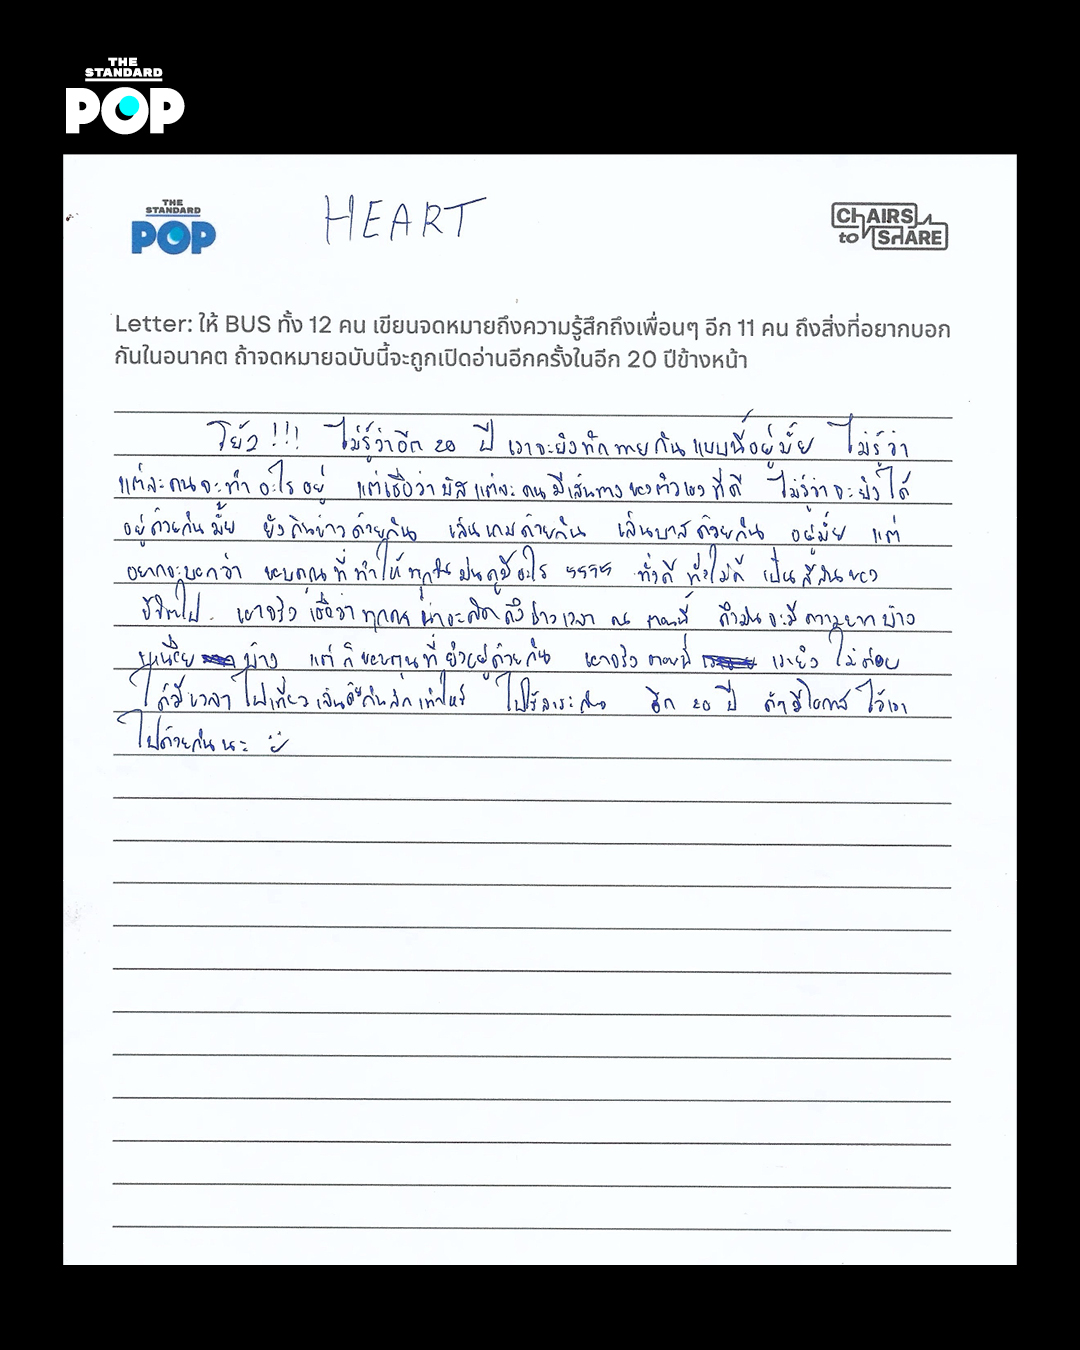 THE
STANDARD
POP
THE
STANDARD
POP
HEART
CHAIRS
to SHARE
Letter: ให้ BUS ทั้ง 12 คน เขียนจดหมายถึงความรู้สึกถึงเพื่อนๆ อีก 11 คน ถึงสิ่งที่อยากบอก
กันในอนาคต ถ้าจดหมายฉบับนี้จะถูกเปิดอ่านอีกครั้งในอีก 20 ปีข้างหน้า
โย่ว !!! ไม่รู้ว่าอีก 20 ปี เราจะยังทักทายกันแบบนี้อยู่มั้ย ไม่รู้ว่า
แต่ละคนจะทำอะไรอยู่ แต่เชื่อว่าบัสแต่ละคนมีเส้นทางของตัวเองที่ดี ไม่รู้ว่าจะยังได้
อยู่ด้วยกันมั้ย ยังกินข้าวด้วยกัน เล่นเกมด้วยกัน เล่นบาสด้วยกัน อยู่มั้ย แต่
อยากจะบอกว่า ขอบคุณที่ทำให้ทุกวันมันดูมีอะไร 5555 ทั้งดี ทั้งไม่ดี เป็นสีสันของ
ชีวิตไป. เอาจริง เชื่อว่าทุกคนน่าจะคิดถึงช่วงเวลา ณ ตอนนี้ ถึงมันจะมีความยากบ้าง
เหนื่อย บ้าง แต่ก็ขอบคุณที่ยังอยู่ด้วยกัน เอาจริง ตอนนี้ เรายังไม่ค่อย
ได้มีเวลาไปเที่ยวเล่นด้วยกันสักเท่าไหร่ ไปไร้สาระกัน อีก 20 ปี ถ้ามีโอกาส ไว้เรา
ไปด้วยกันนะ